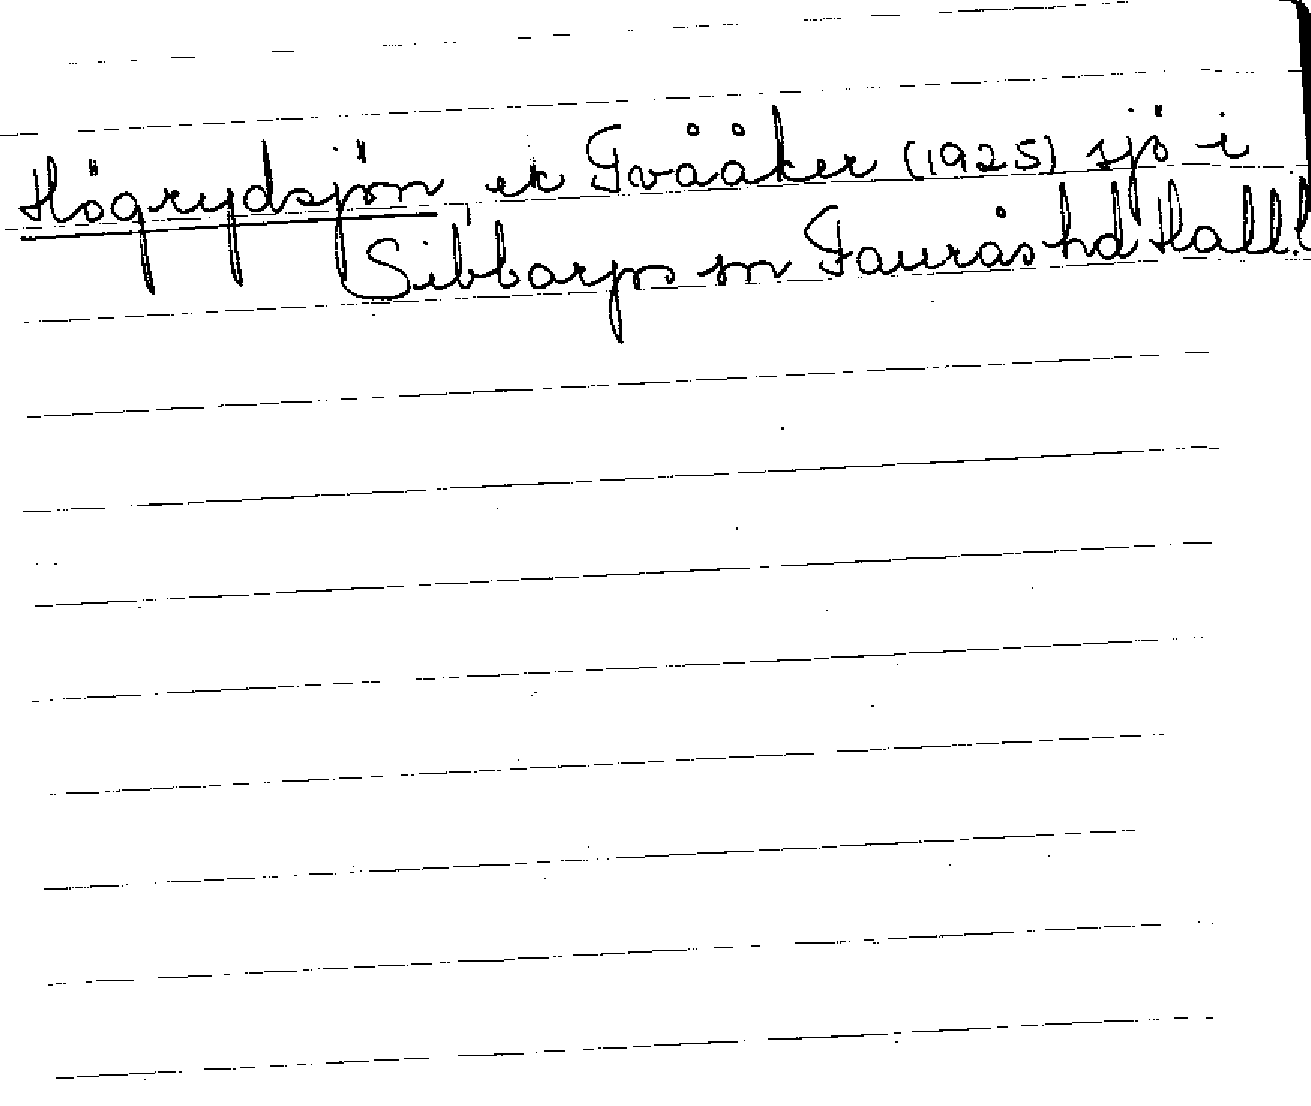 Högrydsjön ek Tvååker (1925) sjö i
Sibbarps sn Faurås hd Hall.